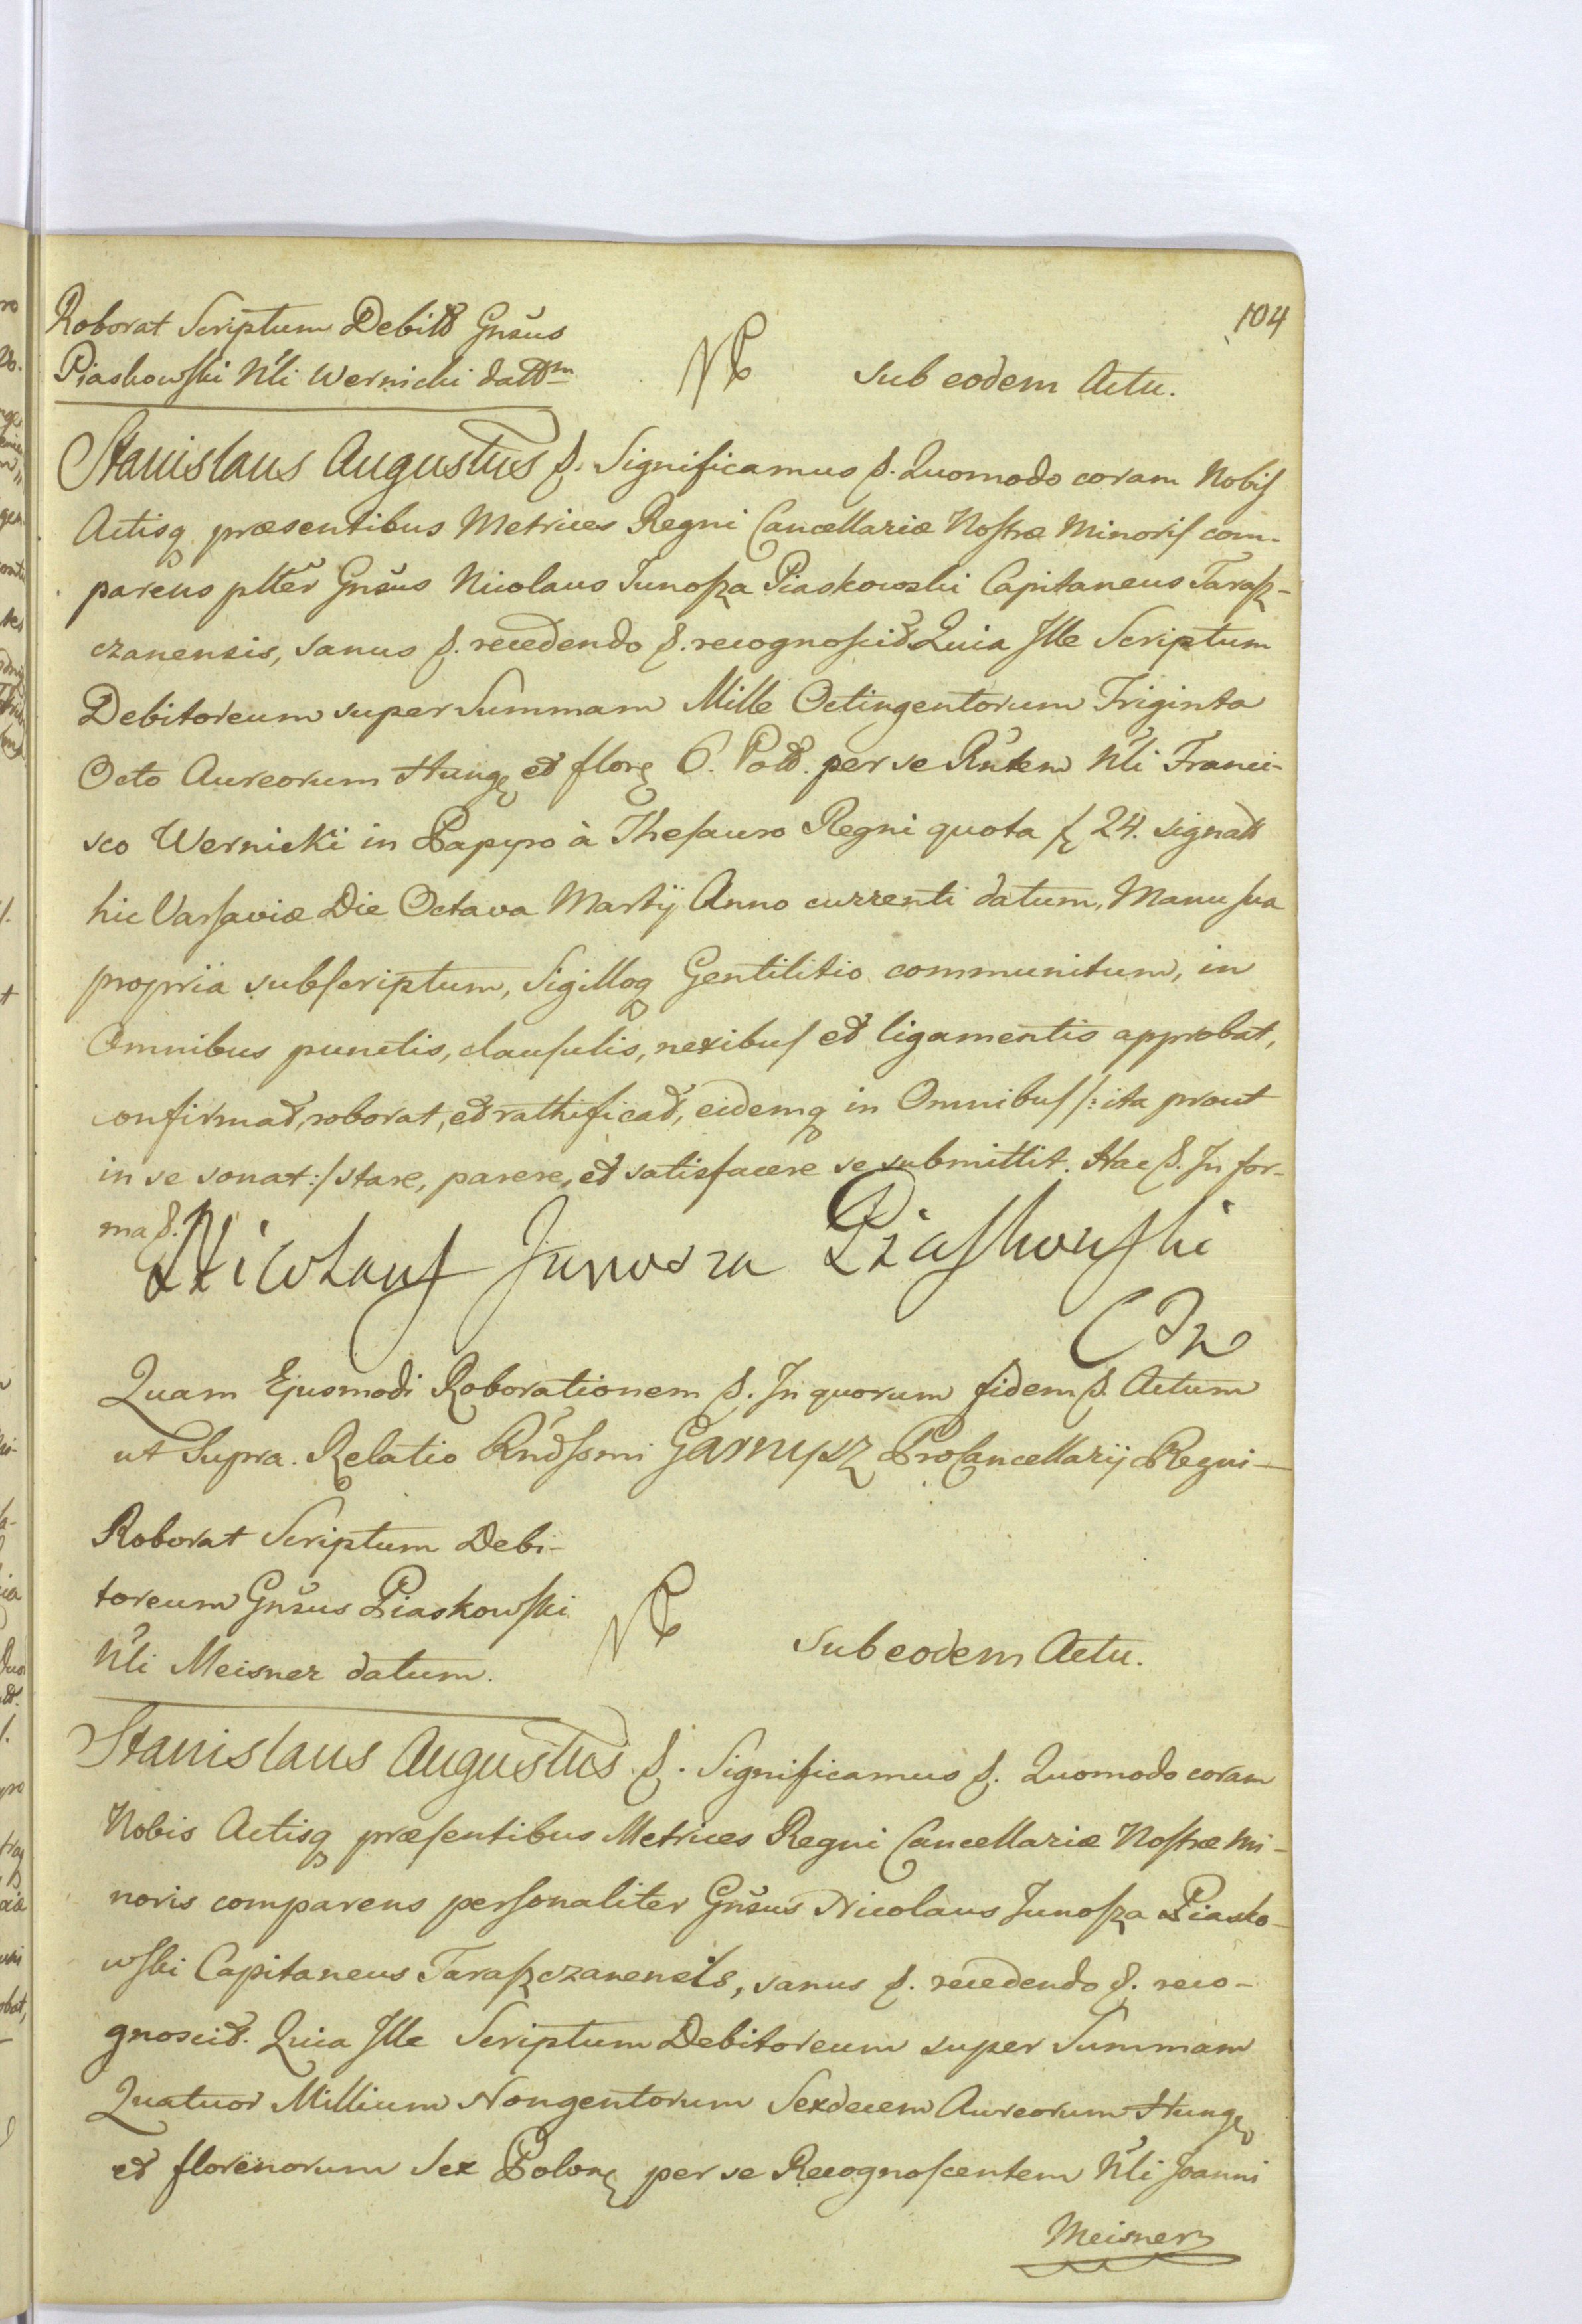 104
Roborat Scriptum Debitt Gnsus
Piaskowski Nli Wernicki dattm
NB Sub eodem Actu.
Stanislaus Augustus &. Significamus &. Quomodo coram Nobis
Actisq præsentibus Metrices Regni Cancellariæ Nostræ Minoris com-
parens pltter Gnsus Nicolaus Junosza Piaskowski Capitaneus Tarasz-
czanensis, sanus &. recedendo &. recognoscit Quia Ille Scriptum
Debitoreum super Summam Mille Octingentorum Triginta
Octo Aureorum Hung et flor 6. Poll. per se Rntem Nli Franci-
sco Wernicki in Papyro à Thesauro Regni quota f 24. signatt
hic Varsaviæ Die Octava Martij Anno currenti datum, Manu sua
propria subscriptum, Sigilloq Gentilitio communitum, in
Omnibus punctis, clausulis, nexibus et ligamentis approbat,
confirmat, roborat, et rathificat, eidemq in Omnibus /: ita prout
in se sonat :/ stare, parere, et satisfacere se submittit. Hac &. In for-
ma &.
Nicolaus Junosza Piaskowski
Quam Ejusmodi Roborationem &. In quorum fidem &. Actum
ut Supra. Relatio Rndssmi Garnysz ProCancellarij Regni —
Roborat Scriptum Debi-
toreum Gnsus Piaskowski
Nli Meisner datum.
NB Sub eodem Actu.
Stanislaus Augustus &. Significamus &. Quomodo coram
Nobis Actisq præsentibus Metrices Regni Cancellariæ Nostræ Mi-
noris comparens personaliter Gnsus Nicolaus Junosza Piasko-
wski Capitaneus Taraszczanensis, sanus &. recedendo &. reco-
gnoscit. Quia Ille Scriptum Debitoreum super Summam
Quatuor Millium Nongentorum Sexdecem Aureorum Hung
et florenorum Sex Polon per se Recognoscentem Nli Joanni
Meisner